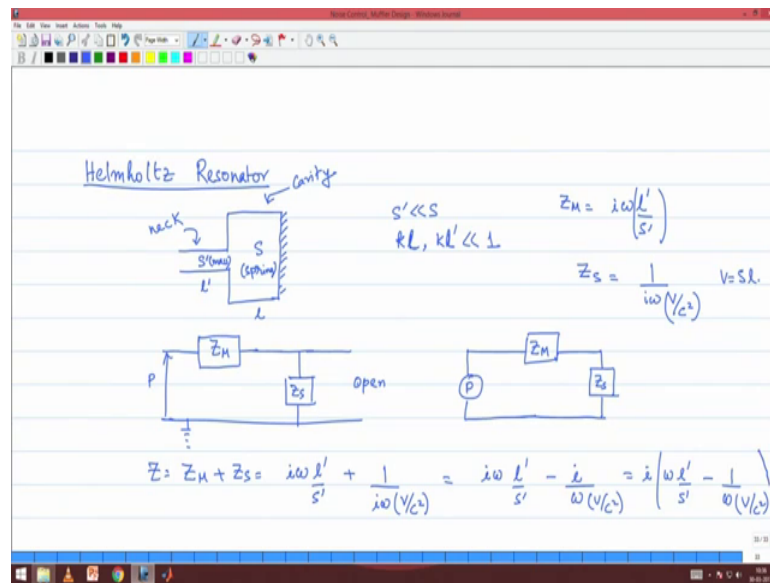 Noise Control_Muffler Design - Windows Journal
File Edit View Insert Actions Tools Help
Page Width
B I
Helmholtz Resonator
cavity
neck
S'(mass)
l'
S
(spring)
l
S' << S
kl, kl' << 1
Z_M = iω(l'/S')
Z_S = 1/(iω(V/c²)) V=Sl.
P
Z_M
Z_S
Open
P
Z_M
Z_S
Z = Z_M + Z_S = iω l'/S' + 1/(iω(V/c²)) = iω l'/S' - i/(ω(V/c²)) = i(ω l'/S' - 1/(ω(V/c²)))
33 / 33
33